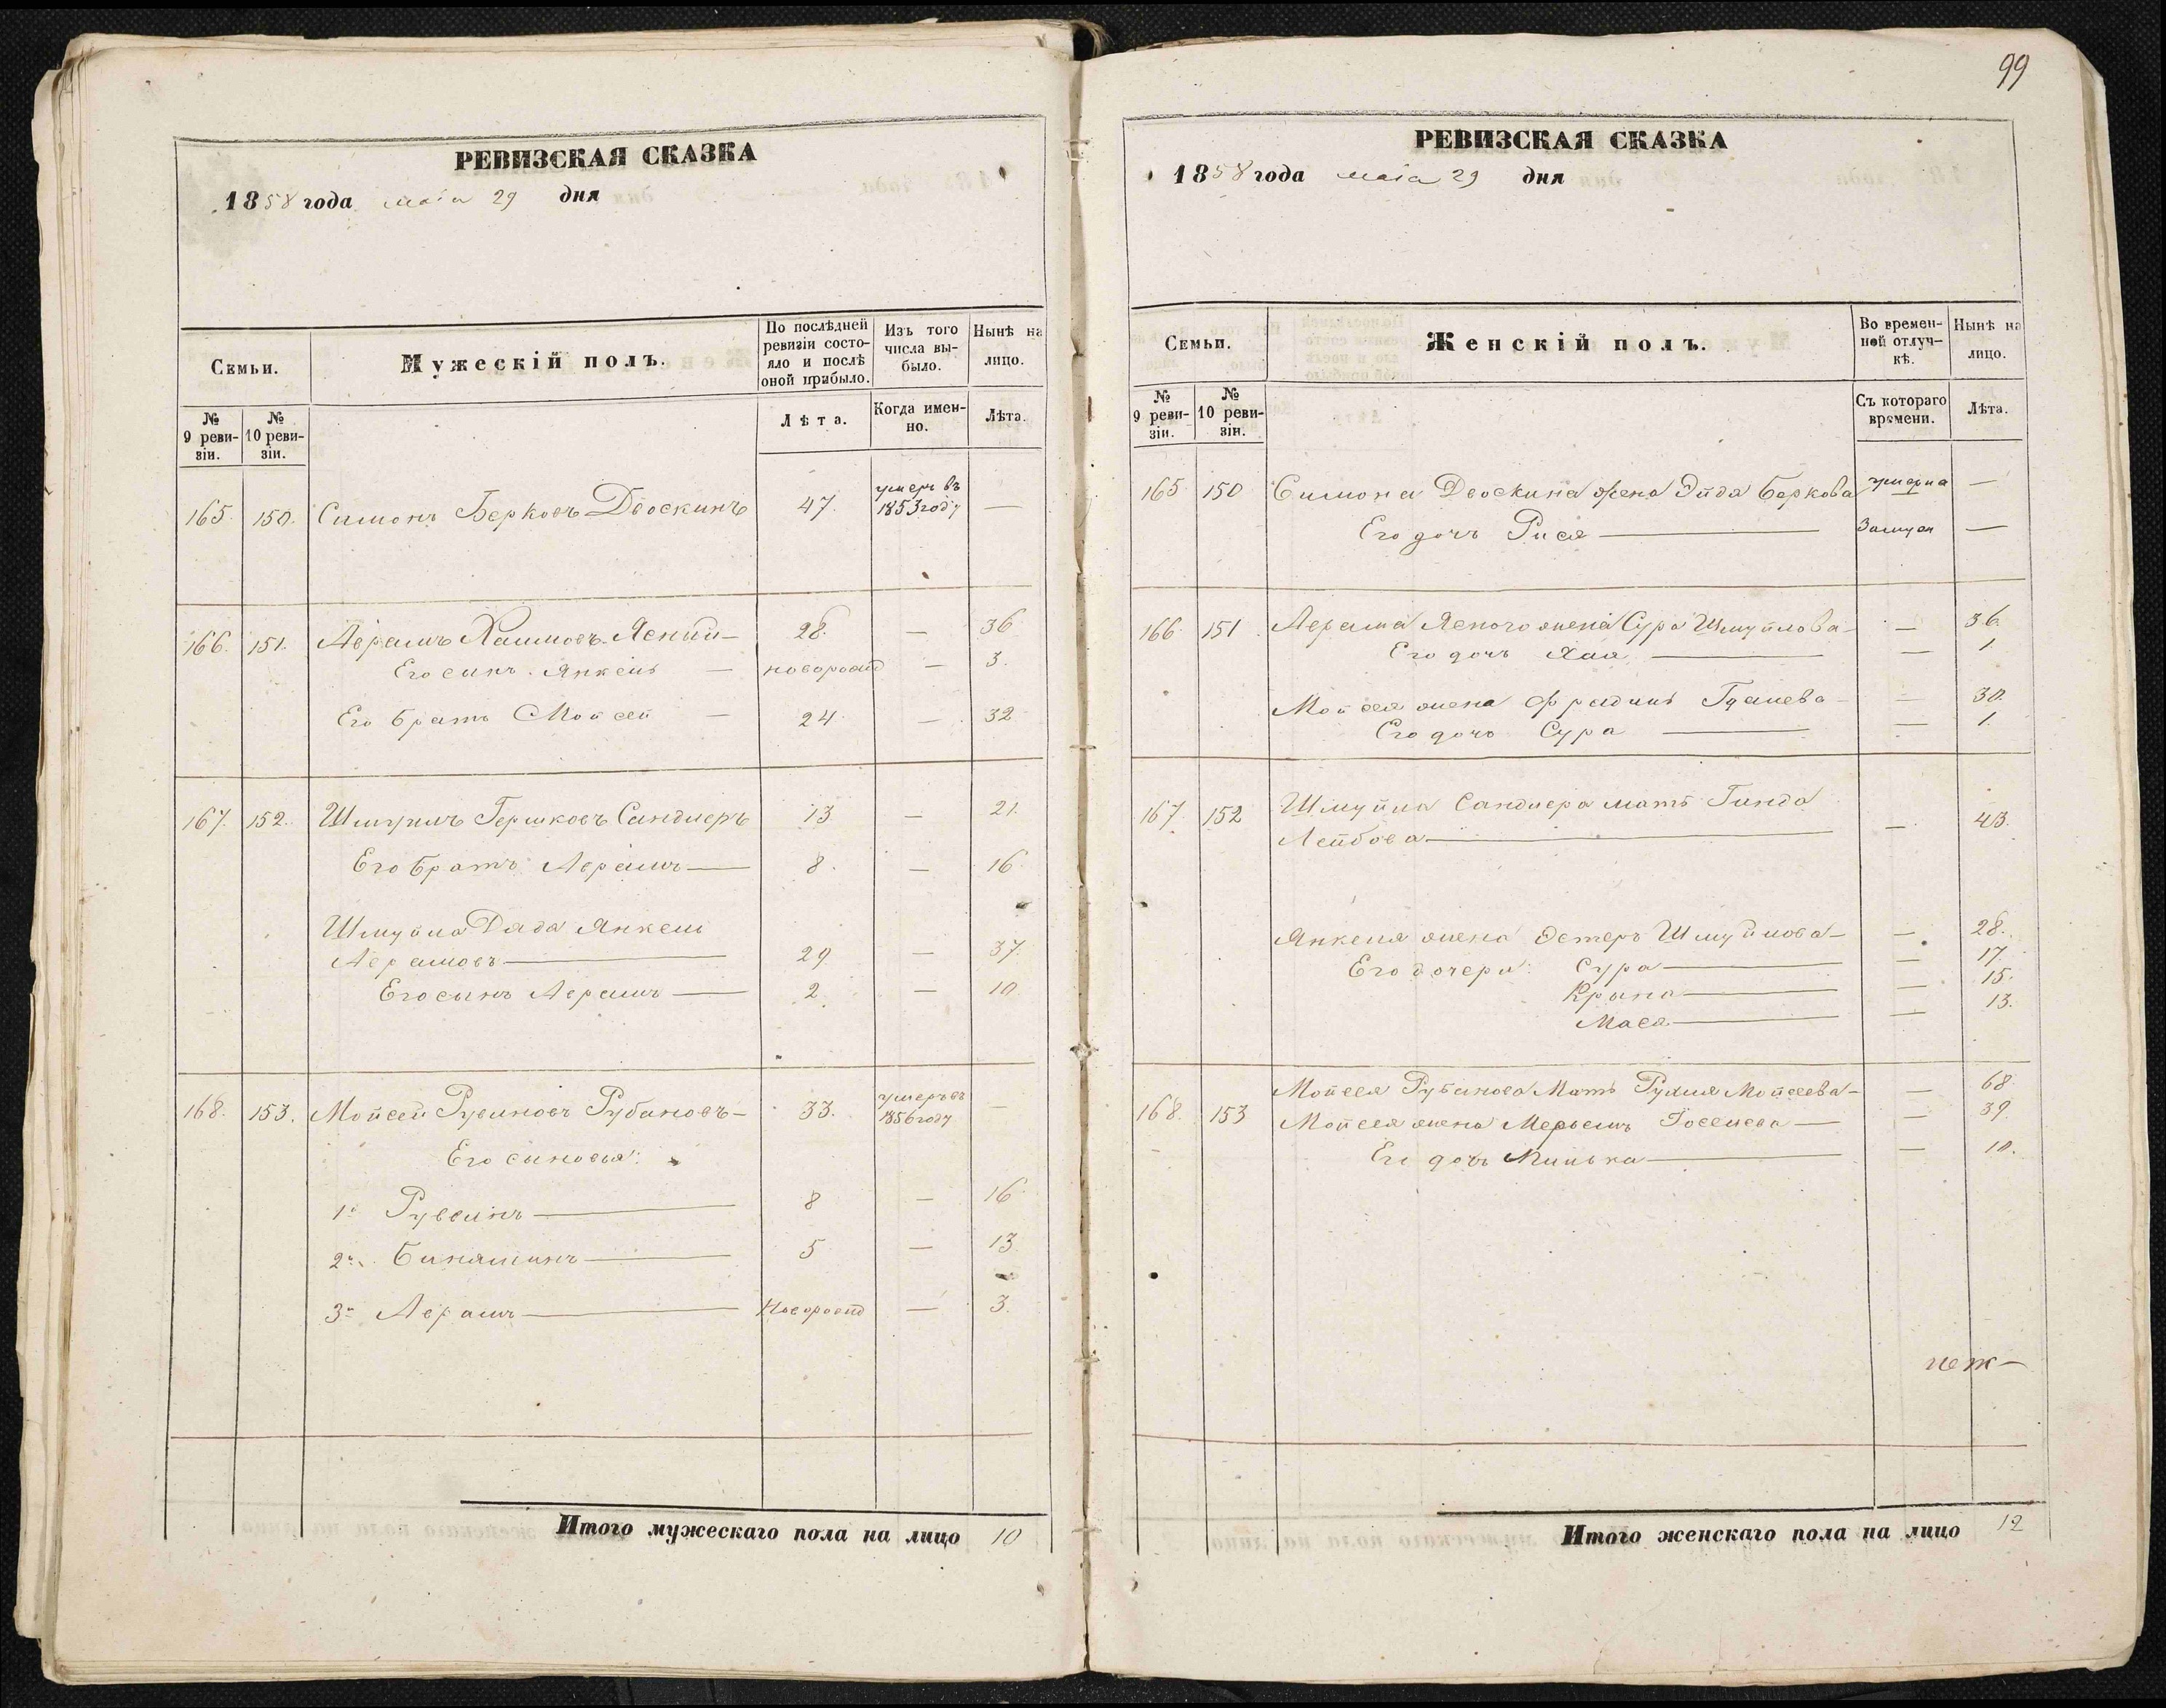 РЕВИЗСКАЯ СКАЗКА
1858 года маія 29 дня
Семьи.
Мужескій полъ.
По послѣдней ревизіи состояло и послѣ оной прибыло.
Изъ того числа выбыло.
Нынѣ на лицо.
№ 9 ревизіи.
№ 10 ревизіи.
Лѣта.
Когда именно.
Лѣта.
165. 150. Симонъ Берковъ Двоскинъ 47. умеръ въ 1853 году —
166. 151. Абрамъ Хаимовъ Ясный — 28. — 36
Его сынъ Янкель — новорожд — 3.
Его братъ Мойсей — 24 — 32
167. 152. Шмуилъ Гершковъ Сандлеръ 13 — 21.
Его братъ Абрамъ — 8. — 16
Шмуйла Дядя Янкель
Абрамовъ — 29 — 37.
Его сынъ Абрамъ — 2. — 10
168. 153. Мойсей Рувиновъ Рубановъ — 33. умеръ въ 1856 году —
Его сыновья:
1й Рувинъ — 8 — 16
2й Биняминъ — 5 — 13
3й Абрамъ — Новорожд — 3.
Итого мужескаго пола на лицо 10
99
РЕВИЗСКАЯ СКАЗКА
1858 года маія 29 дня
Семьи.
Женскій полъ.
Во временной отлучкѣ.
Нынѣ на лицо.
№ 9 ревизіи.
№ 10 ревизіи.
Съ котораго времени.
Лѣта.
165 150 Симона Двоскина жена Эйда Беркова умерла —
Его дочь Рися — Замуж —
166. 151 Абрама Ясного жена Сура Шмуйлова — — 36.
Его дочь Хая — — 1
Мойсея жена Фрадиль — 30.
Его дочь Сура — — 1.
167. 152 Шмуйла Сандлера мать Гинда
Лейбова — — 43.
Янкеля жена Эстеръ Шмуйлова — — 28.
Его дочери: Сура — — 17.
Крана — — 15.
Мася — — 13.
Мойсея Рубанова Мать Рухля Мойсеева — — 68
168. 153 Мойсея жена Мерьемъ Іоселева — — 39
Его дочь Минька — — 10.
Итого женскаго пола на лицо 12